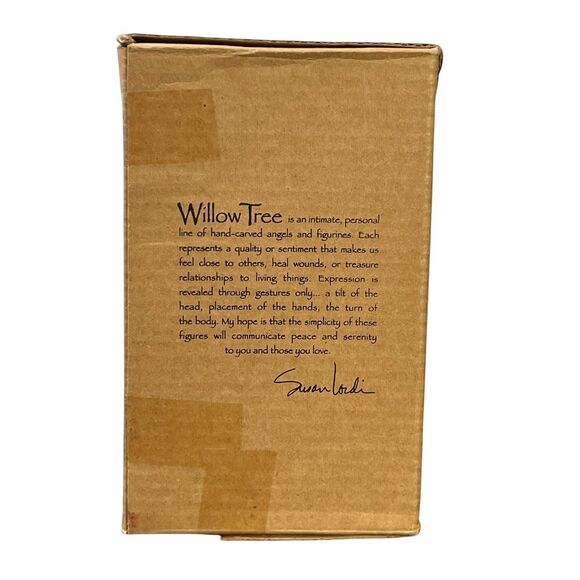 Willow Tree is an intimate, personal
line of hand-carved angels and figurines. Each
represents a quality or sentiment that makes us
feel close to others, heal wounds, or treasure
relationships to living things. Expression is
revealed through gestures only... a tilt of the
head, placement of the hands, the turn of
the body. My hope is that the simplicity of these
figures will communicate peace and serenity
to you and those you love.
Susan Lordi